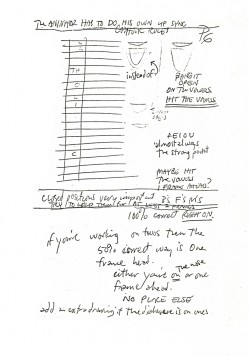 The ANIMATOR HAS TO DO HIS OWN LIP SYNC
P6
TH
instead of
BANG IT
OPEN
ON THE VOWELS
HIT THE VOWELS
AEIOU
almost always
the strong point
MAYBE HIT
THE VOWELS
closed positions very important
B's F's M's
100% correct RIGHT ON
if you're working on twos then the
50% correct way is one
frame head.
either you're on the nose or one
frame ahead.
NO PLACE ELSE
add an extra drawing if the dialogue is on ones